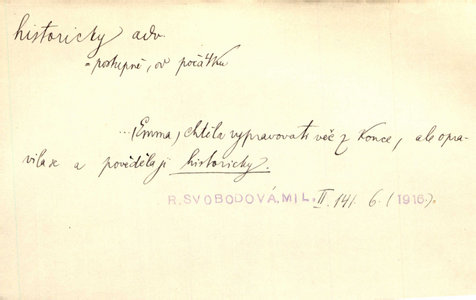 historicky adv.
= postupně, od počátku
... Emma, chtěla vypravovati věc z konce, ale opra-
vila se a pověděla ji historicky.
R. SVOBODOVÁ. MIL. II. 141. 6. (1916.).